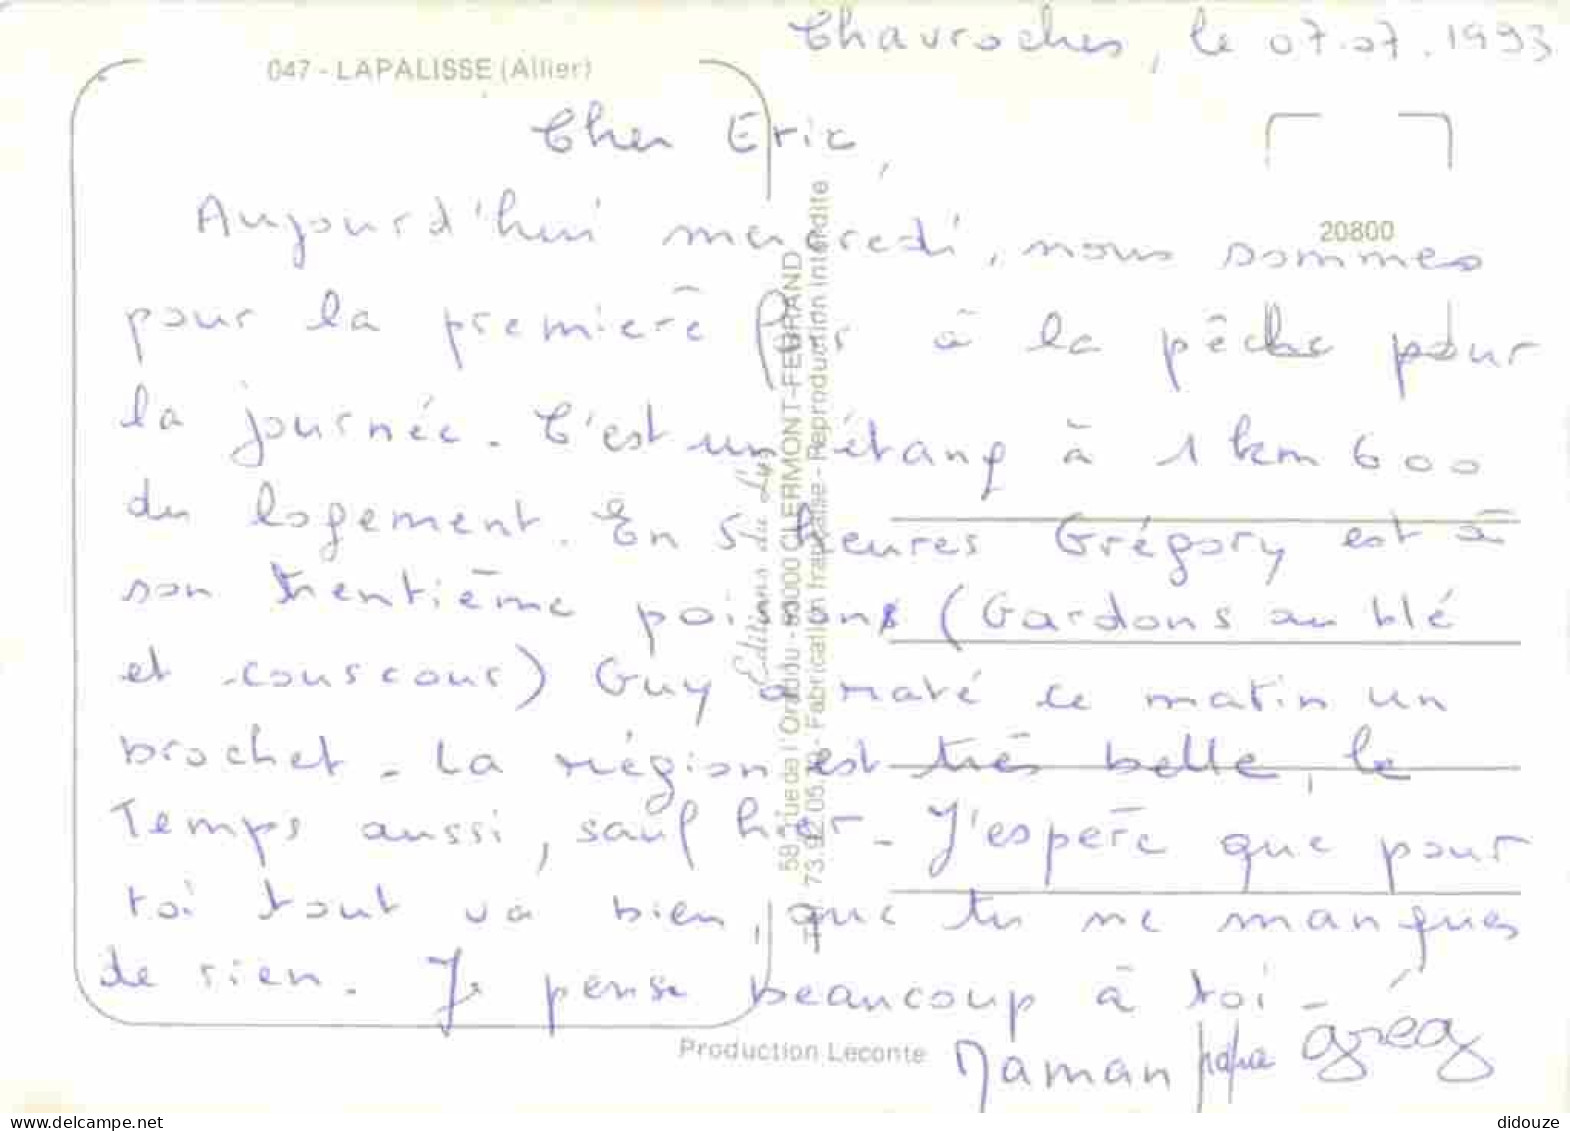 Chavroches, le 07.07.1993
047 - LAPALISSE (Allier)
Cher Eric,
20800
Aujourd'hui mercredi, nous sommes
pour la première fois à la pêche pour
la journée. C'est un étang à 1 km 600
du logement. En 5 heures Grégory est à
son trentième poisson (Gardons au blé
et couscous) Guy a raté ce matin un
brochet. La région est très belle, le
Temps aussi, sauf hier. J'espère que pour
toi tout va bien, que tu ne manques
de rien. Je pense beaucoup à toi.
Maman papa Grég
Editions du Lys
58, rue de l'Oradou - 63000 CLERMONT-FERRAND
73.92.05.78 - Fabrication française - Reproduction interdite
Production Leconte
didouze